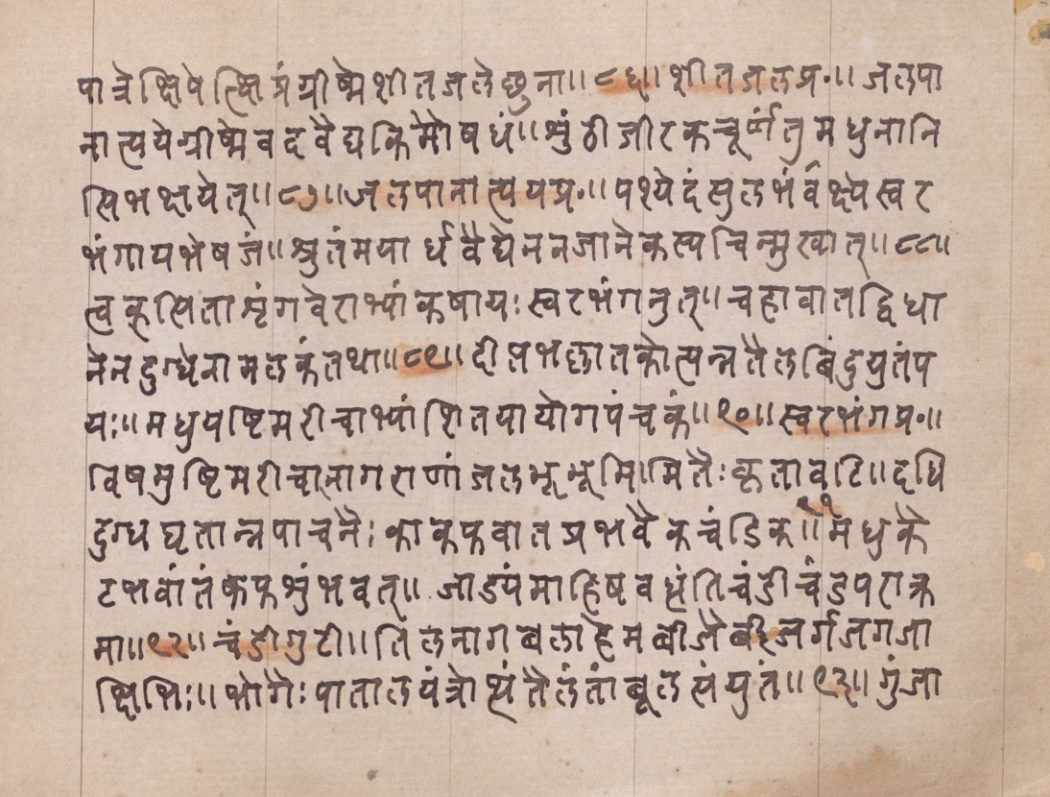 पात्रेक्षिपेत्क्षिप्रंग्रीष्मेशीतजलेछुना॥८६॥शीतजलप्र॰॥जलपा
नात्ययेग्रीष्मेवदवैद्यकिमौषधं॥शुंठीजीरकचूर्णंतुमधुनानि
सिभक्षयेत्॥८७॥जलपानात्ययप्र॰॥पश्येदंसुलभंर्वक्ष्येस्वर
भंगायभेषजं॥श्रुतंमयार्धवैद्येननजानेकस्यचिन्मुखात्॥८८॥
त्वक्सिताशृंगवेराभ्यांकषायःस्वरभंगनुत्॥चहावातद्विधा
नेनदुग्धेनामलकंतथा॥८९॥दीप्तभल्लातकोत्पन्नतैलबिंदुयुतंप
यः॥मधुयष्टिमरीचाभ्यांशितयायोगपंचकं॥९०॥स्वरभंगप्र॰॥
विषमुष्टिमरीचानागराणांजलभूभूमि।मितैःकृतावटि॥दधि
दुग्धघृतान्नपाचनैःकाकफवातप्रभवेकचंडिका॥९१॥मधुकै
टभवांतंकफशुंभवत्॥जाड्यंमाहिषवध्नंतिचंडीचंडपराक्र
मा॥९२॥चंडीगुटी॥तिलनागबलाहेमबीजैबीजर्गजगजा
क्षिभिः॥भोगैःपातालयंत्रोत्थंतैलंतांबूलसंयुतं॥९३॥गुंजा